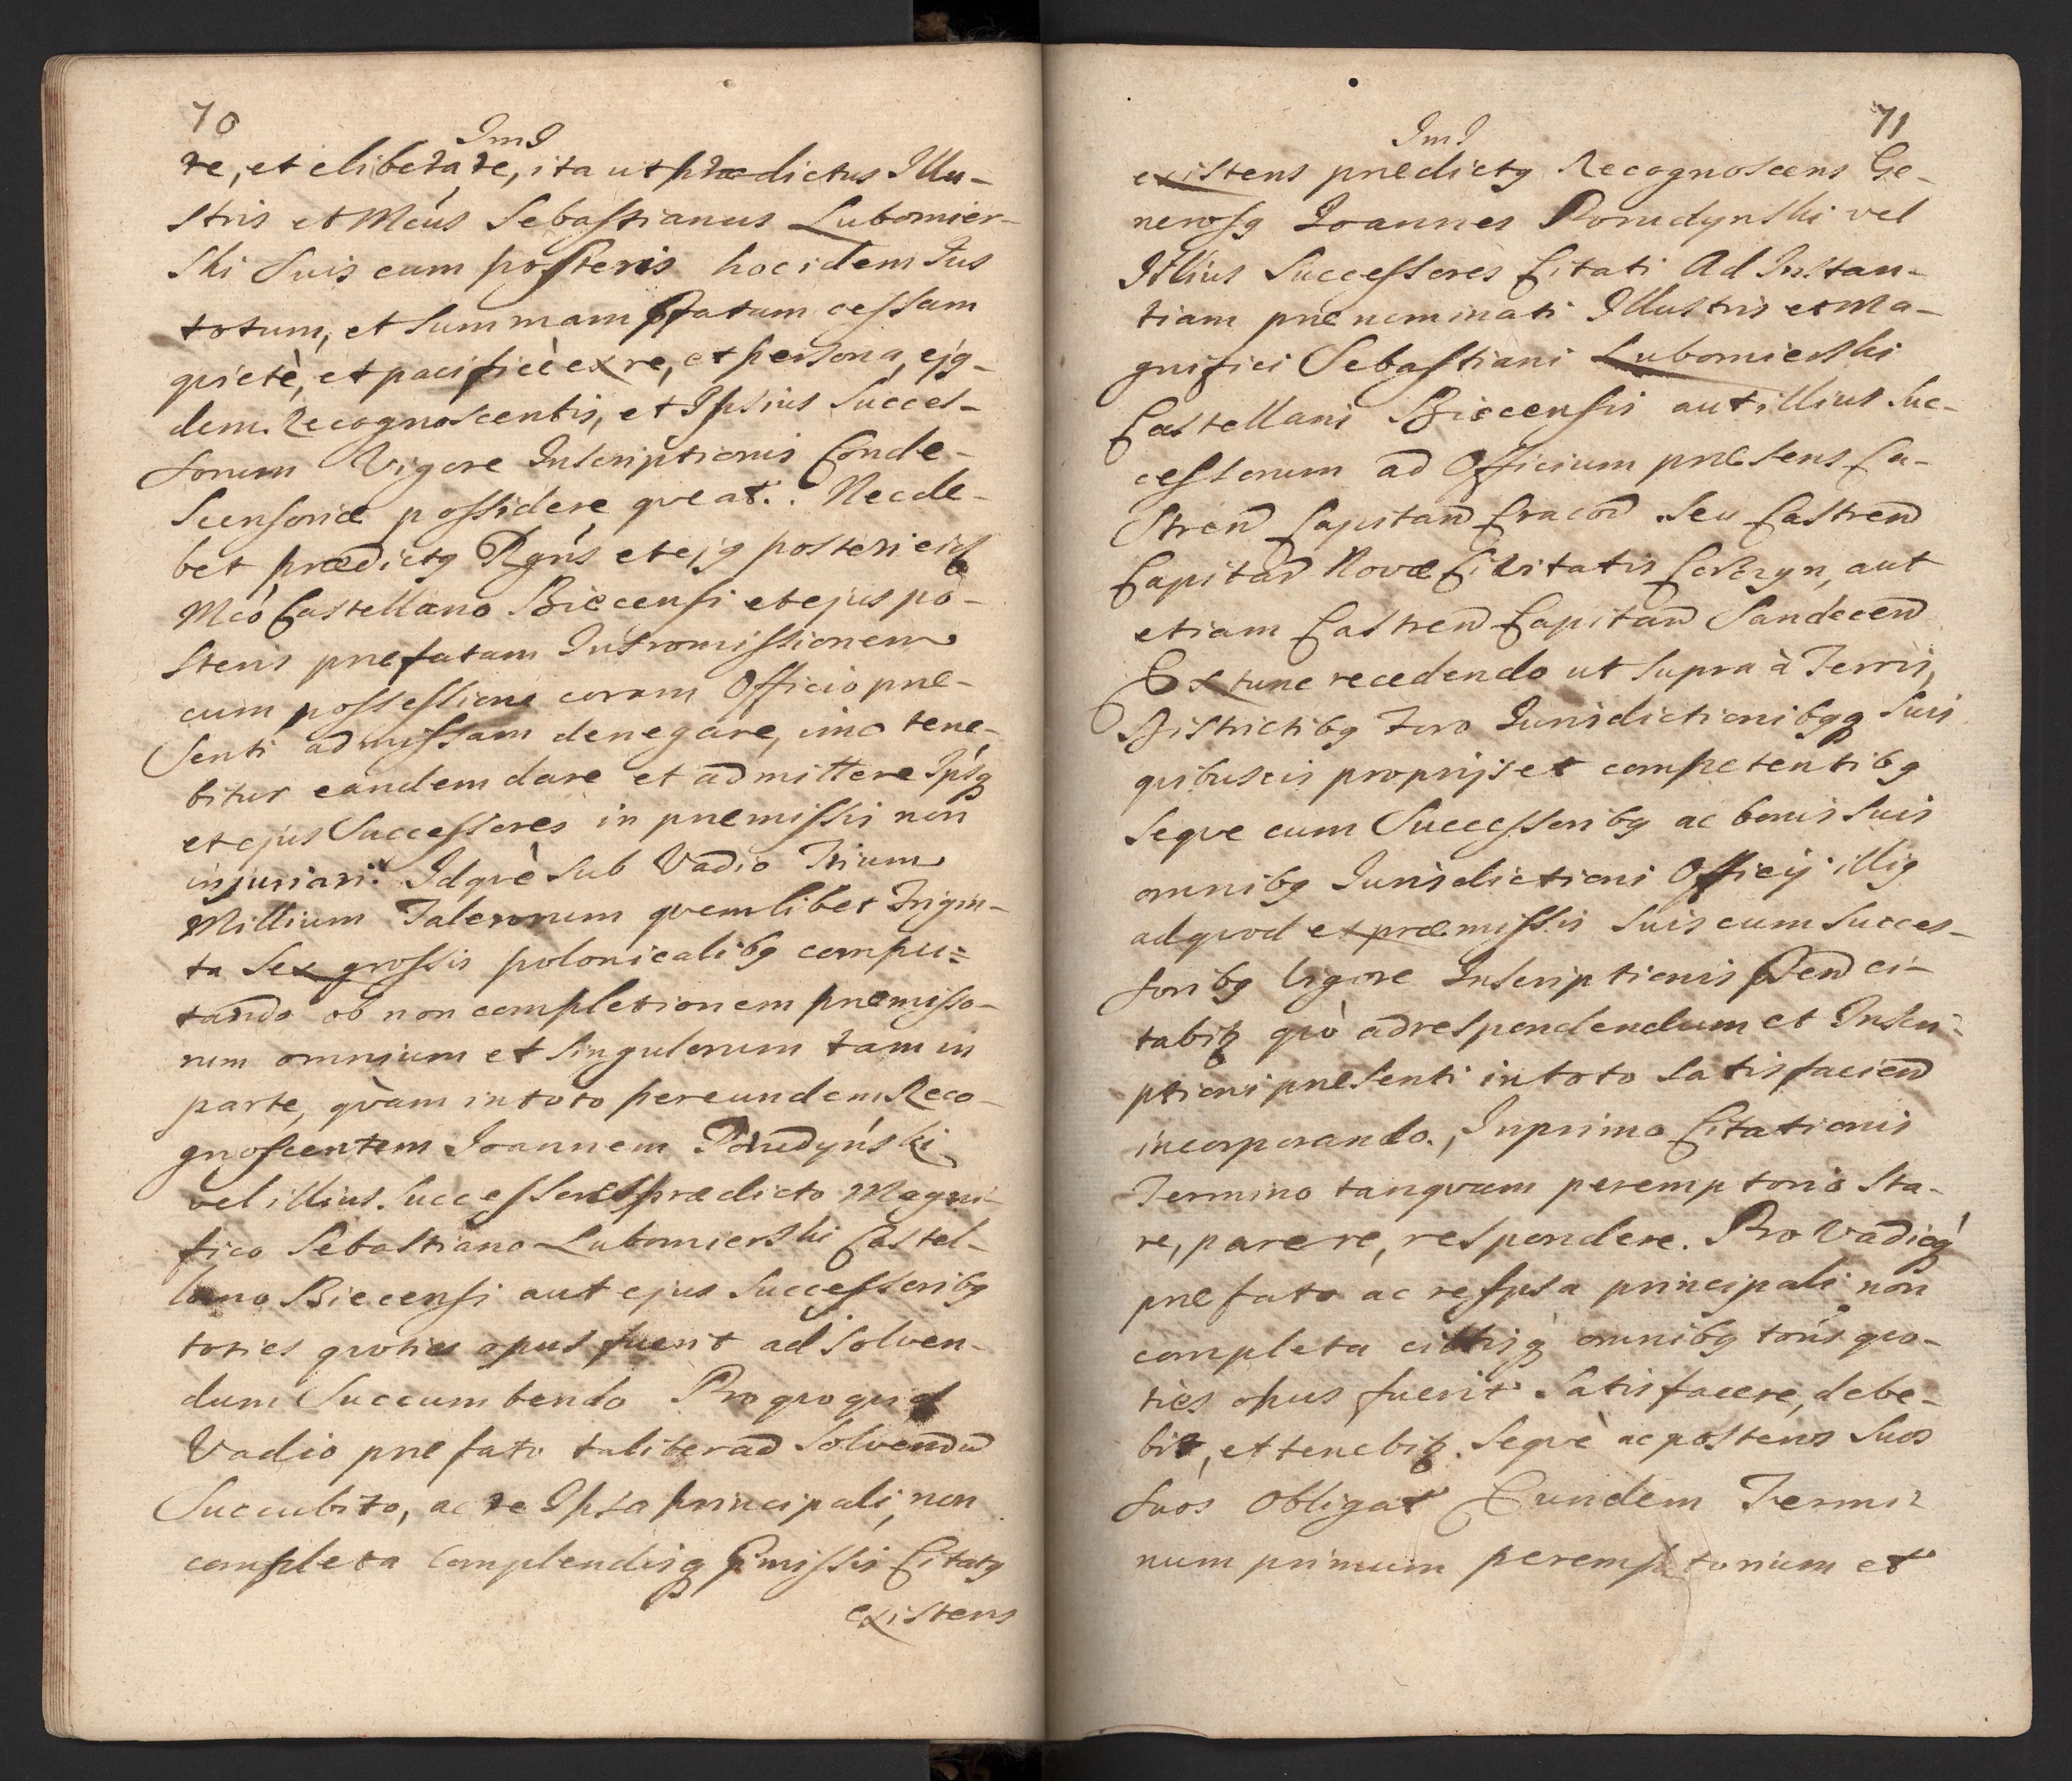 70
ImJ
re, et eliberare, ita ut prædictus Illu-
stris et Mcus Sebastianus Lubomier-
ski suis cum posteris hoc idem Jus
totum, et Summam pfatam cessam
quietè, et pacificè ex re, et persona, ejq-
dem Recognoscentis, et Ipsius Succes-
sorum Vigore Inscriptionis Conde-
scensoriæ possidere qveat. Nec de-
bet prædictq Rgńs et ejq posteri eid
Mco Castellano Biecensi et ejus po-
steris præfatam Intromissionem
cum possessione coram Officio præ-
senti admissam denegare, imo tene-
bitur eandem dare et admittere Ipsq
et ejus Successores in præmissis non
injuriari. Idqvè sub Vadio Trium
Millium Talerorum qvemlibet Trigin-
ta Sex grossis polonicalibq compu=
tando ob non completionem præmisso-
rum omnium et singulorum tam in
parte, qvàm in toto per eundem Reco-
gnoscentem Joannem Porudyński
vel illius Successores prædicto Magni-
fico Sebastiano Lubomierski Castel-
lano Biecensi aut ejus Successoribq
toties qvoties opus fuerit ad solven-
dum Succumbendo Pro qvo qvid
Vadio præfato taliter ad Solvendū
Succubito, ac re Ipsa principali, non
completa Complendisq pmissis Citatq
existens
71
ImJ
existens prædictq Recognoscens Ge-
nerosq Joannes Porudynski vel
Illius Successores Citati Ad Instan-
tiam prænominati Illustris et Ma-
gnifici Sebastiani Lubomierski
Castellani Biecensis aut illius Suc-
cessorum ad Officium præsens Ca-
stren Capitan Cracov seu Castren
Capitan Novæ Civitatis Corczyn, aut
etiam Castren Capitan Sandecen
Extunc recedendo ut supra à Terris,
Districtibq Foro Jurisdictionibqq suis
qvibusvis proprijs et competentibq
seqve cum Successoribq ac bonis suis
omnibq Jurisdictioni Officij illiq
ad qvod ex præmissis suis cum Succes-
soribq Vigore Inscriptionis Pen ci-
tabit qvò ad respondendum et Inscri-
ptioni præsenti in toto satisfacien
incorporando., In primo Citationis
Termino tanqvam peremptorio sta-
re, parere, respondere. Pro Vadioq
præfato ac re Ipsa principali non
completa omnibq qvo-
ties opus fuerit Satisfacere, debe-
bit, et tenebit. Seqvè ac posteros Suos
suos Obligat Eundem Termi-
num primum peremptorium et